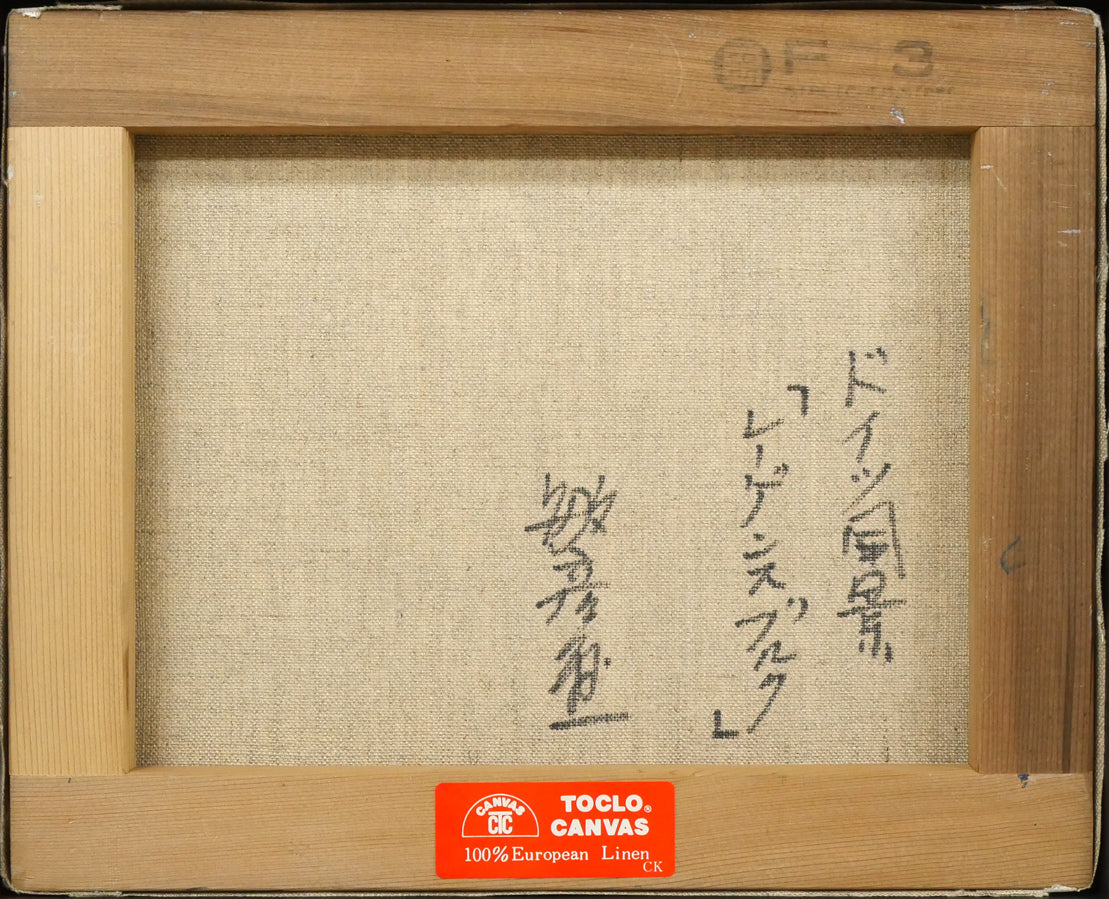 F 3
ドイツ風景
「レーゲンスブルク」
CANVAS
CTC
TOCLO®
CANVAS
100% European Linen
CK